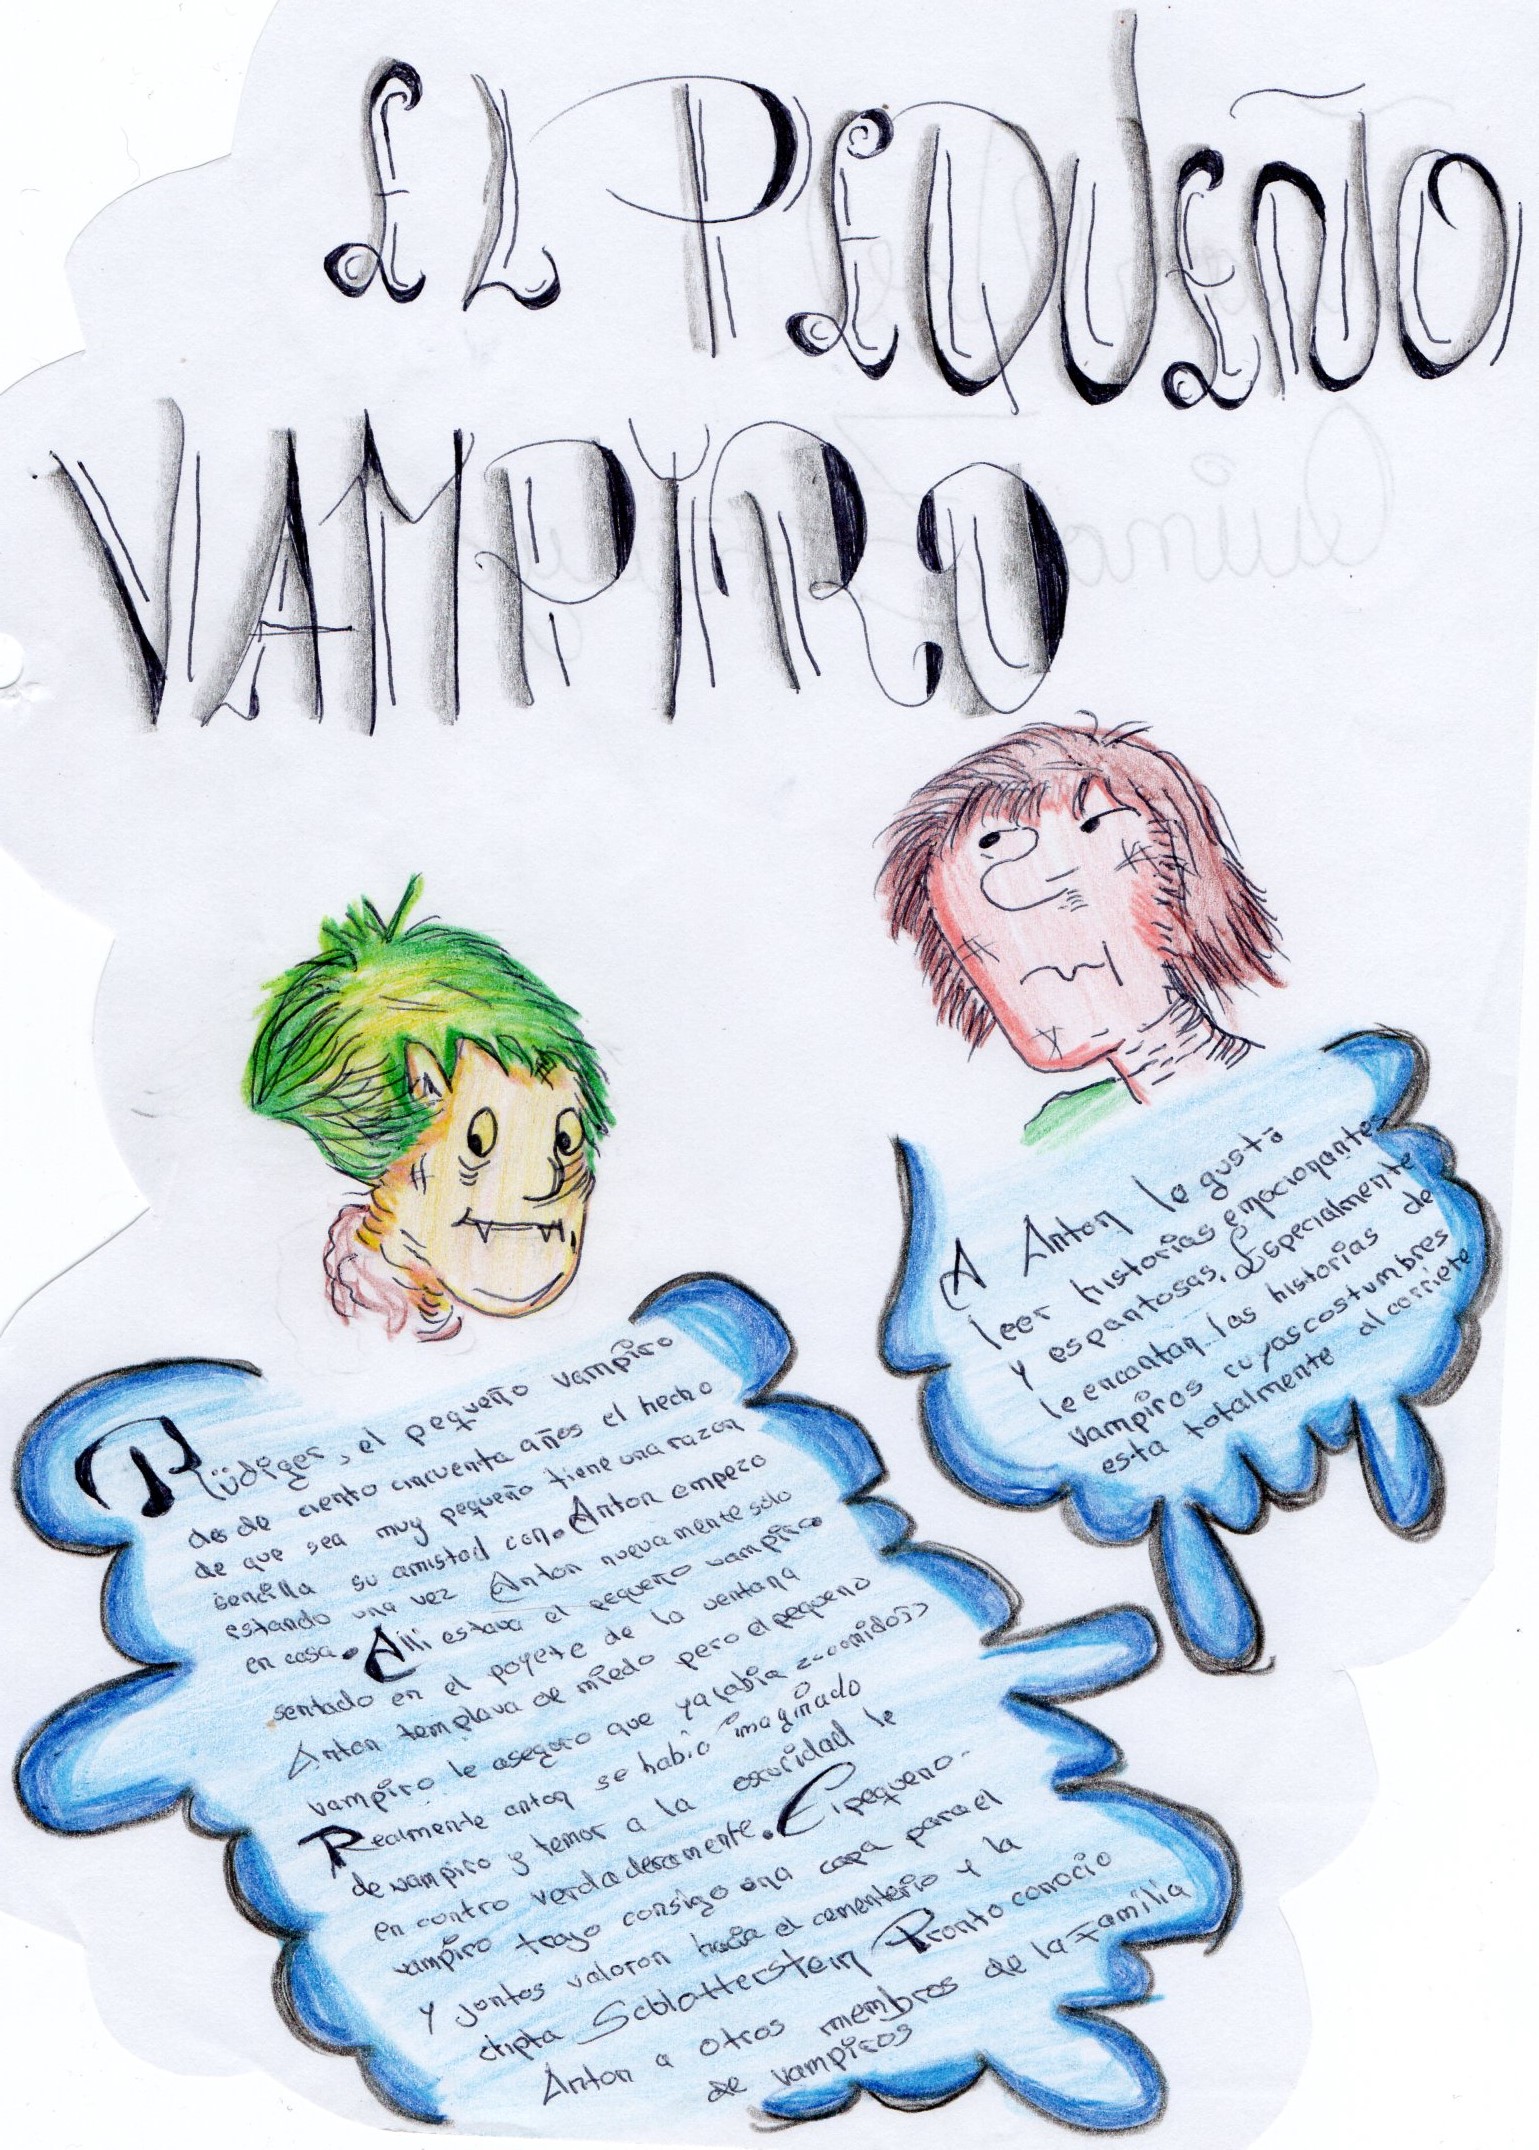 EL PEQUEÑO
VAMPIRO
A Anton le gusta
leer historias emocionantes
y espantosas. Especialmente
le encantan las historias de
vampiros cuyas costumbres
esta totalmente al corriete
Rüdiger, el pequeño vampiro
desde ciento cincuenta años el hecho
de que sea muy pequeño tiene una razon
sencilla su amistad con. Anton empezo
estando una vez Anton nuevamente solo
en casa. Alli estava el pequeño vampiro
sentado en el poyete de la ventana
Anton templava de miedo pero el pequeno
vampiro le aseguro que ya
Realmente anton se habia imaginado
de vampiro y temor a la oscuridad le
en contro verdaderamente. El pequeno
vampiro trajo consigo una capa para el
y juntos valoron hacia el cementerio y la
cripta Schlotterstein Pronto conocio
Anton a otros miembros de la Familia
de vampiros